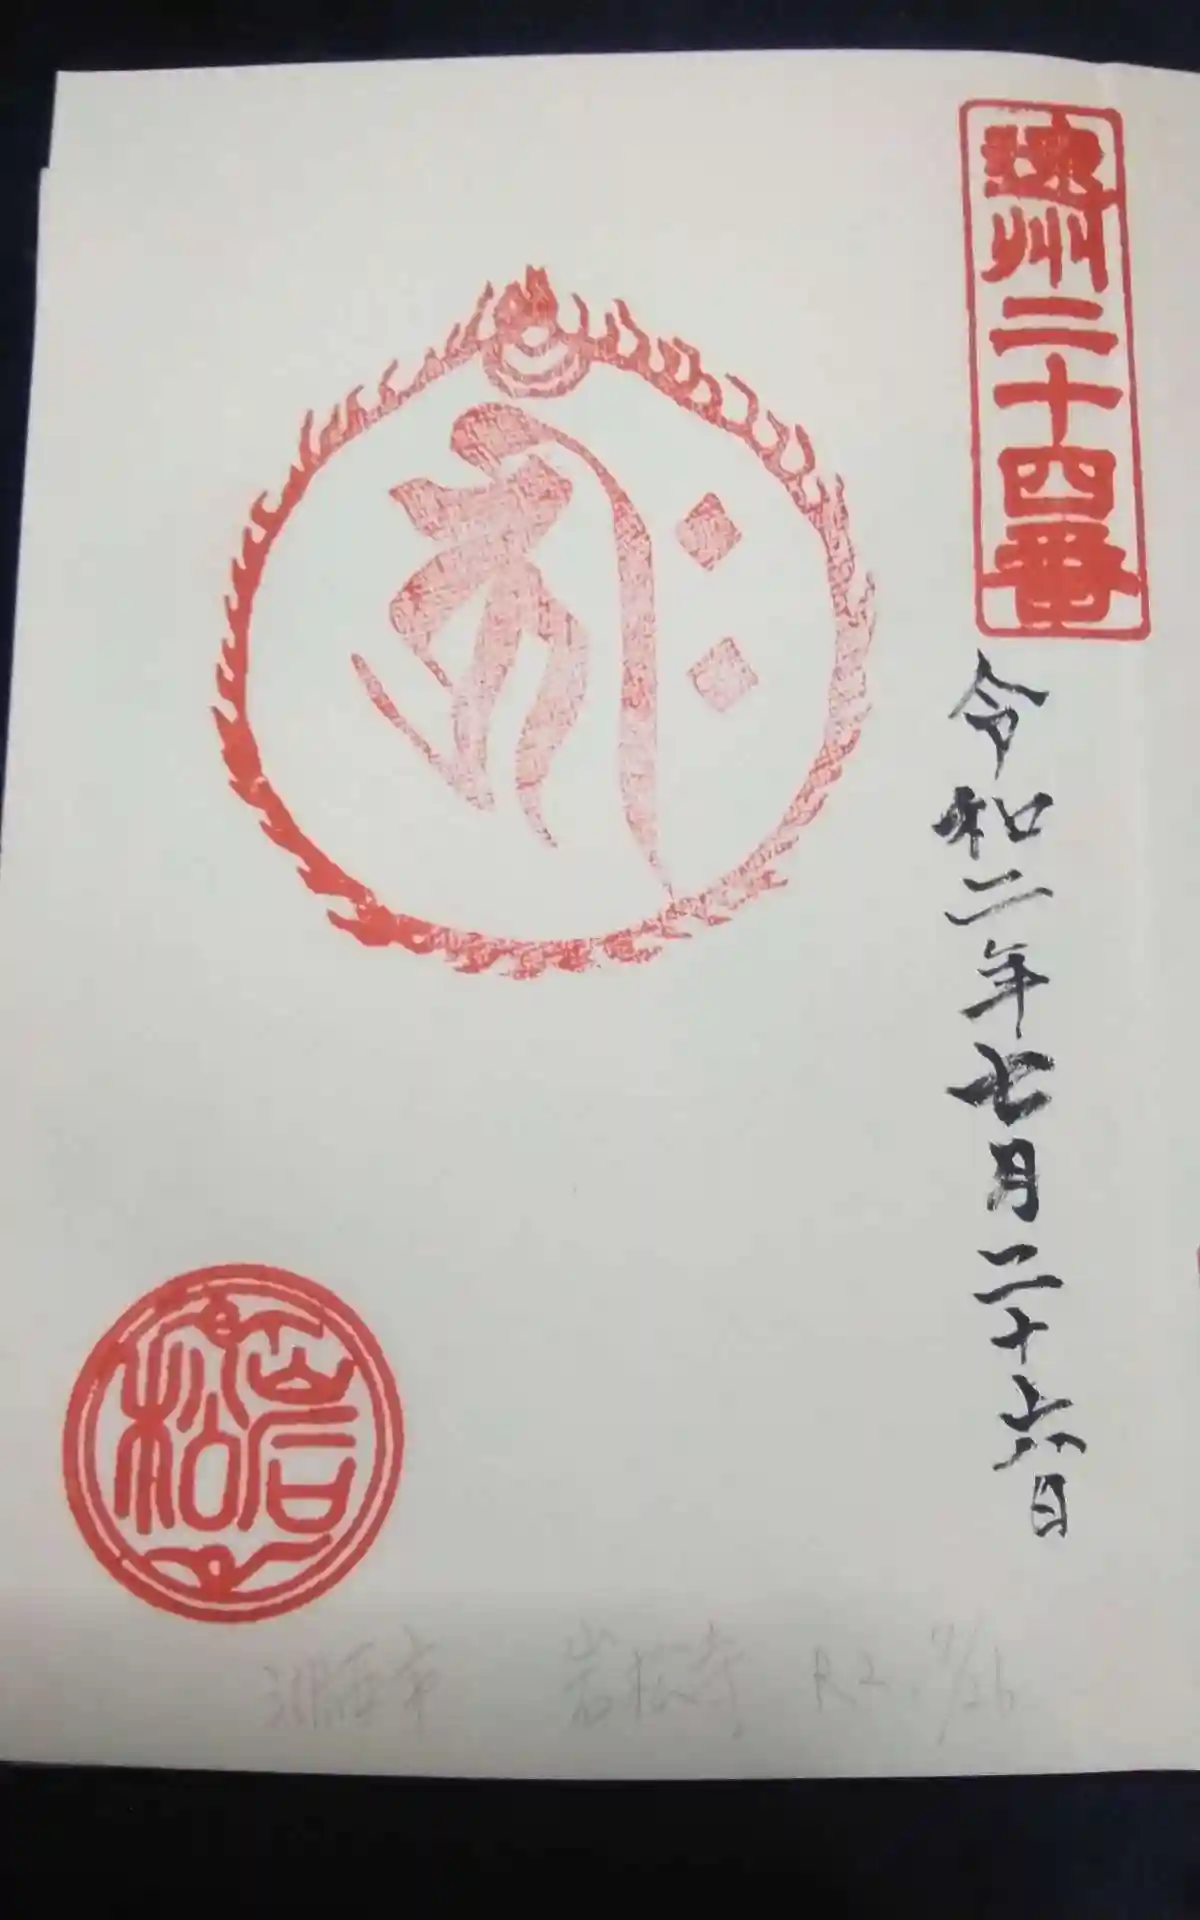 遠州二十四番
令和二年七月二十六日
𑖮𑖿𑖨𑖱𑖾
岩松
湖西市 岩松寺 R2.7/26